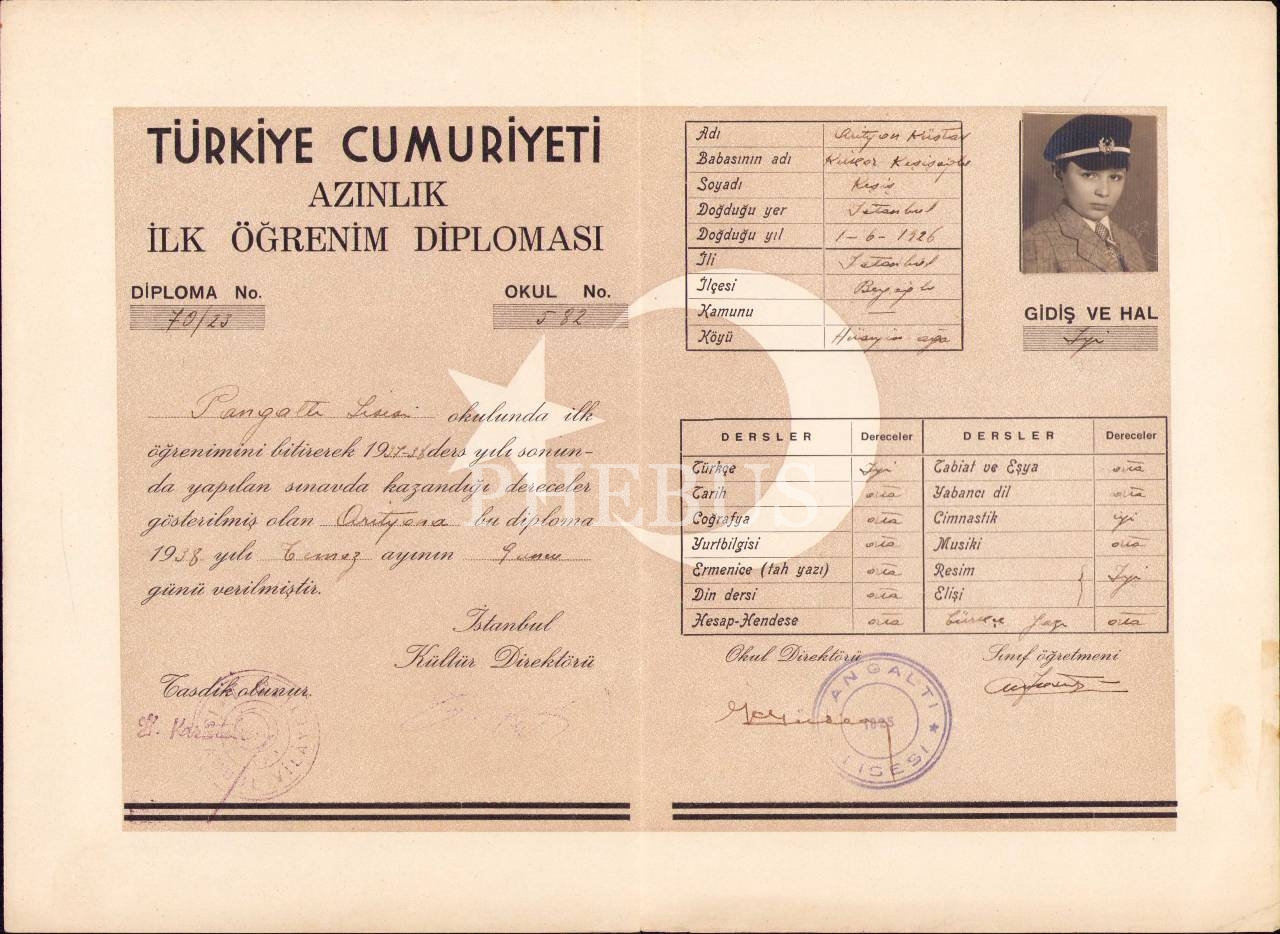 TÜRKİYE CUMURİYETİ
AZINLIK
İLK ÖĞRENİM DİPLOMASI
DİPLOMA No.
70/23
OKUL No.
582
Pangaltı Lisesi okulunda ilk
öğrenimini bitirerek 1937-38 ders yılı sonun-
da yapılan sınavda kazandığı dereceler
gösterilmiş olan bu diploma
1938 yılı Temuz ayının
günü verilmiştir.
İstanbul
Kültür Direktörü
Tasdik olunur.
Adı
Babasının adı
Soyadı Keşiş
Doğduğu yer İstanbul
Doğduğu yıl 1-6-1926
İli İstanbul
İlçesi Beyoğlu
Kamunu —
Köyü Hüseyin ağa
GİDİŞ VE HAL
İyi
DERSLER Dereceler DERSLER Dereceler
Türkçe İyi Tabiat ve Eşya orta
Tarih orta Yabancı dil orta
Coğrafya orta Cimnastik iyi
Yurtbilgisi orta Musiki orta
Ermenice (tah yazı) orta Resim İyi
Din dersi orta Elişi
Hesap-Hendese orta Türkçe Yazı orta
Okul Direktörü
Sınıf öğretmeni
PANGALTI
LİSESİ
PHEBUS